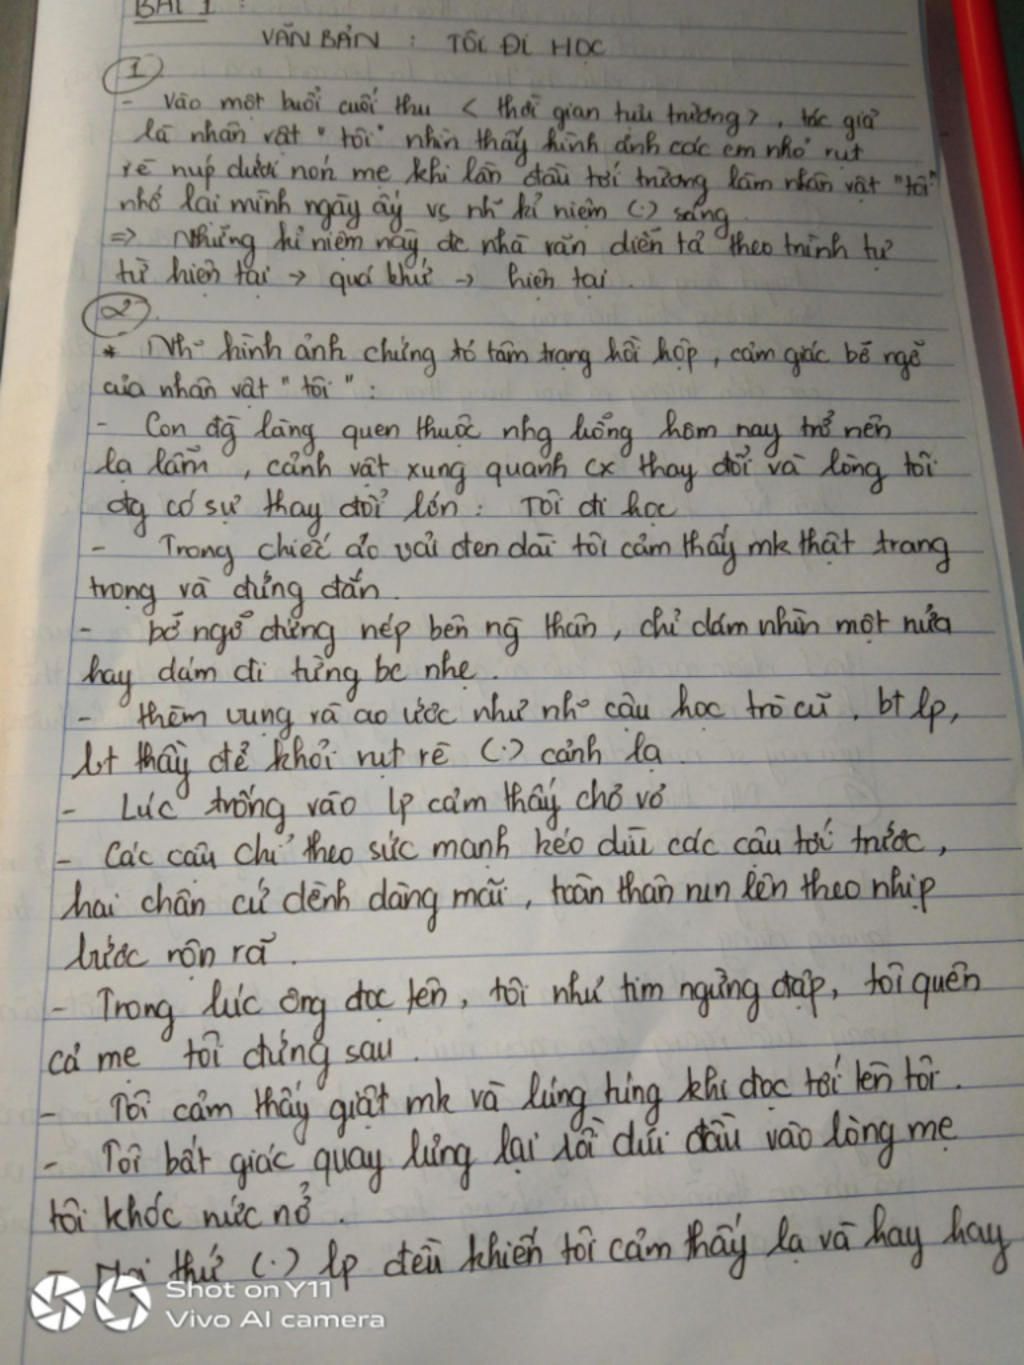 BÀI 1 :
VĂN BẢN : TÔI ĐI HỌC
1
- Vào một buổi cuối thu < thời gian tựu trường >, tác giả
là nhân vật "tôi" nhìn thấy hình ảnh các em nhỏ rụt
rè núp dưới nón mẹ khi lần đầu tới trường làm nhân vật "tôi"
nhớ lại mình ngày ấy vs nh~ kỉ niệm (.) sáng
=> Những kỉ niệm này đc nhà văn diễn tả theo trình tự
từ hiện tại -> quá khứ -> hiện tại.
2
* Nh~ hình ảnh chứng tỏ tâm trạng hồi hộp, cảm giác bỡ ngỡ
của nhân vật "tôi":
- Con đg làng quen thuộc nhg bỗng hôm nay trở nên
lạ lẫm, cảnh vật xung quanh cx thay đổi và lòng tôi
đg có sự thay đổi lớn: Tôi đi học
- Trong chiếc áo vải đen dài tôi cảm thấy mk thật trang
trọng và đứng đắn.
- bỡ ngỡ đứng nép bên ng thân, chỉ dám nhìn một nửa
hay dám đi từng bc nhẹ.
- thèm vụng và ao ước như nh~ cậu học trò cũ, bt lp,
bt thầy để khỏi rụt rè (.) cảnh lạ
- Lúc trống vào lp cảm thấy chơ vơ
- Các cậu chỉ theo sức mạnh kéo dìu các cậu tới trước,
hai chân cứ dềnh dàng mãi, toàn thân run lên theo nhịp
bước rộn rã.
- Trong lúc ông đọc tên, tôi như tim ngừng đập, tôi quên
cả mẹ tôi đứng sau.
- Tôi cảm thấy giật mk và lúng túng khi đọc tới tên tôi.
- Tôi bất giác quay lưng lại rồi dúi đầu vào lòng mẹ
tôi khóc nức nở.
- Mọi thứ (.) lp đều khiến tôi cảm thấy lạ và hay hay
Shot on Y11
Vivo AI camera